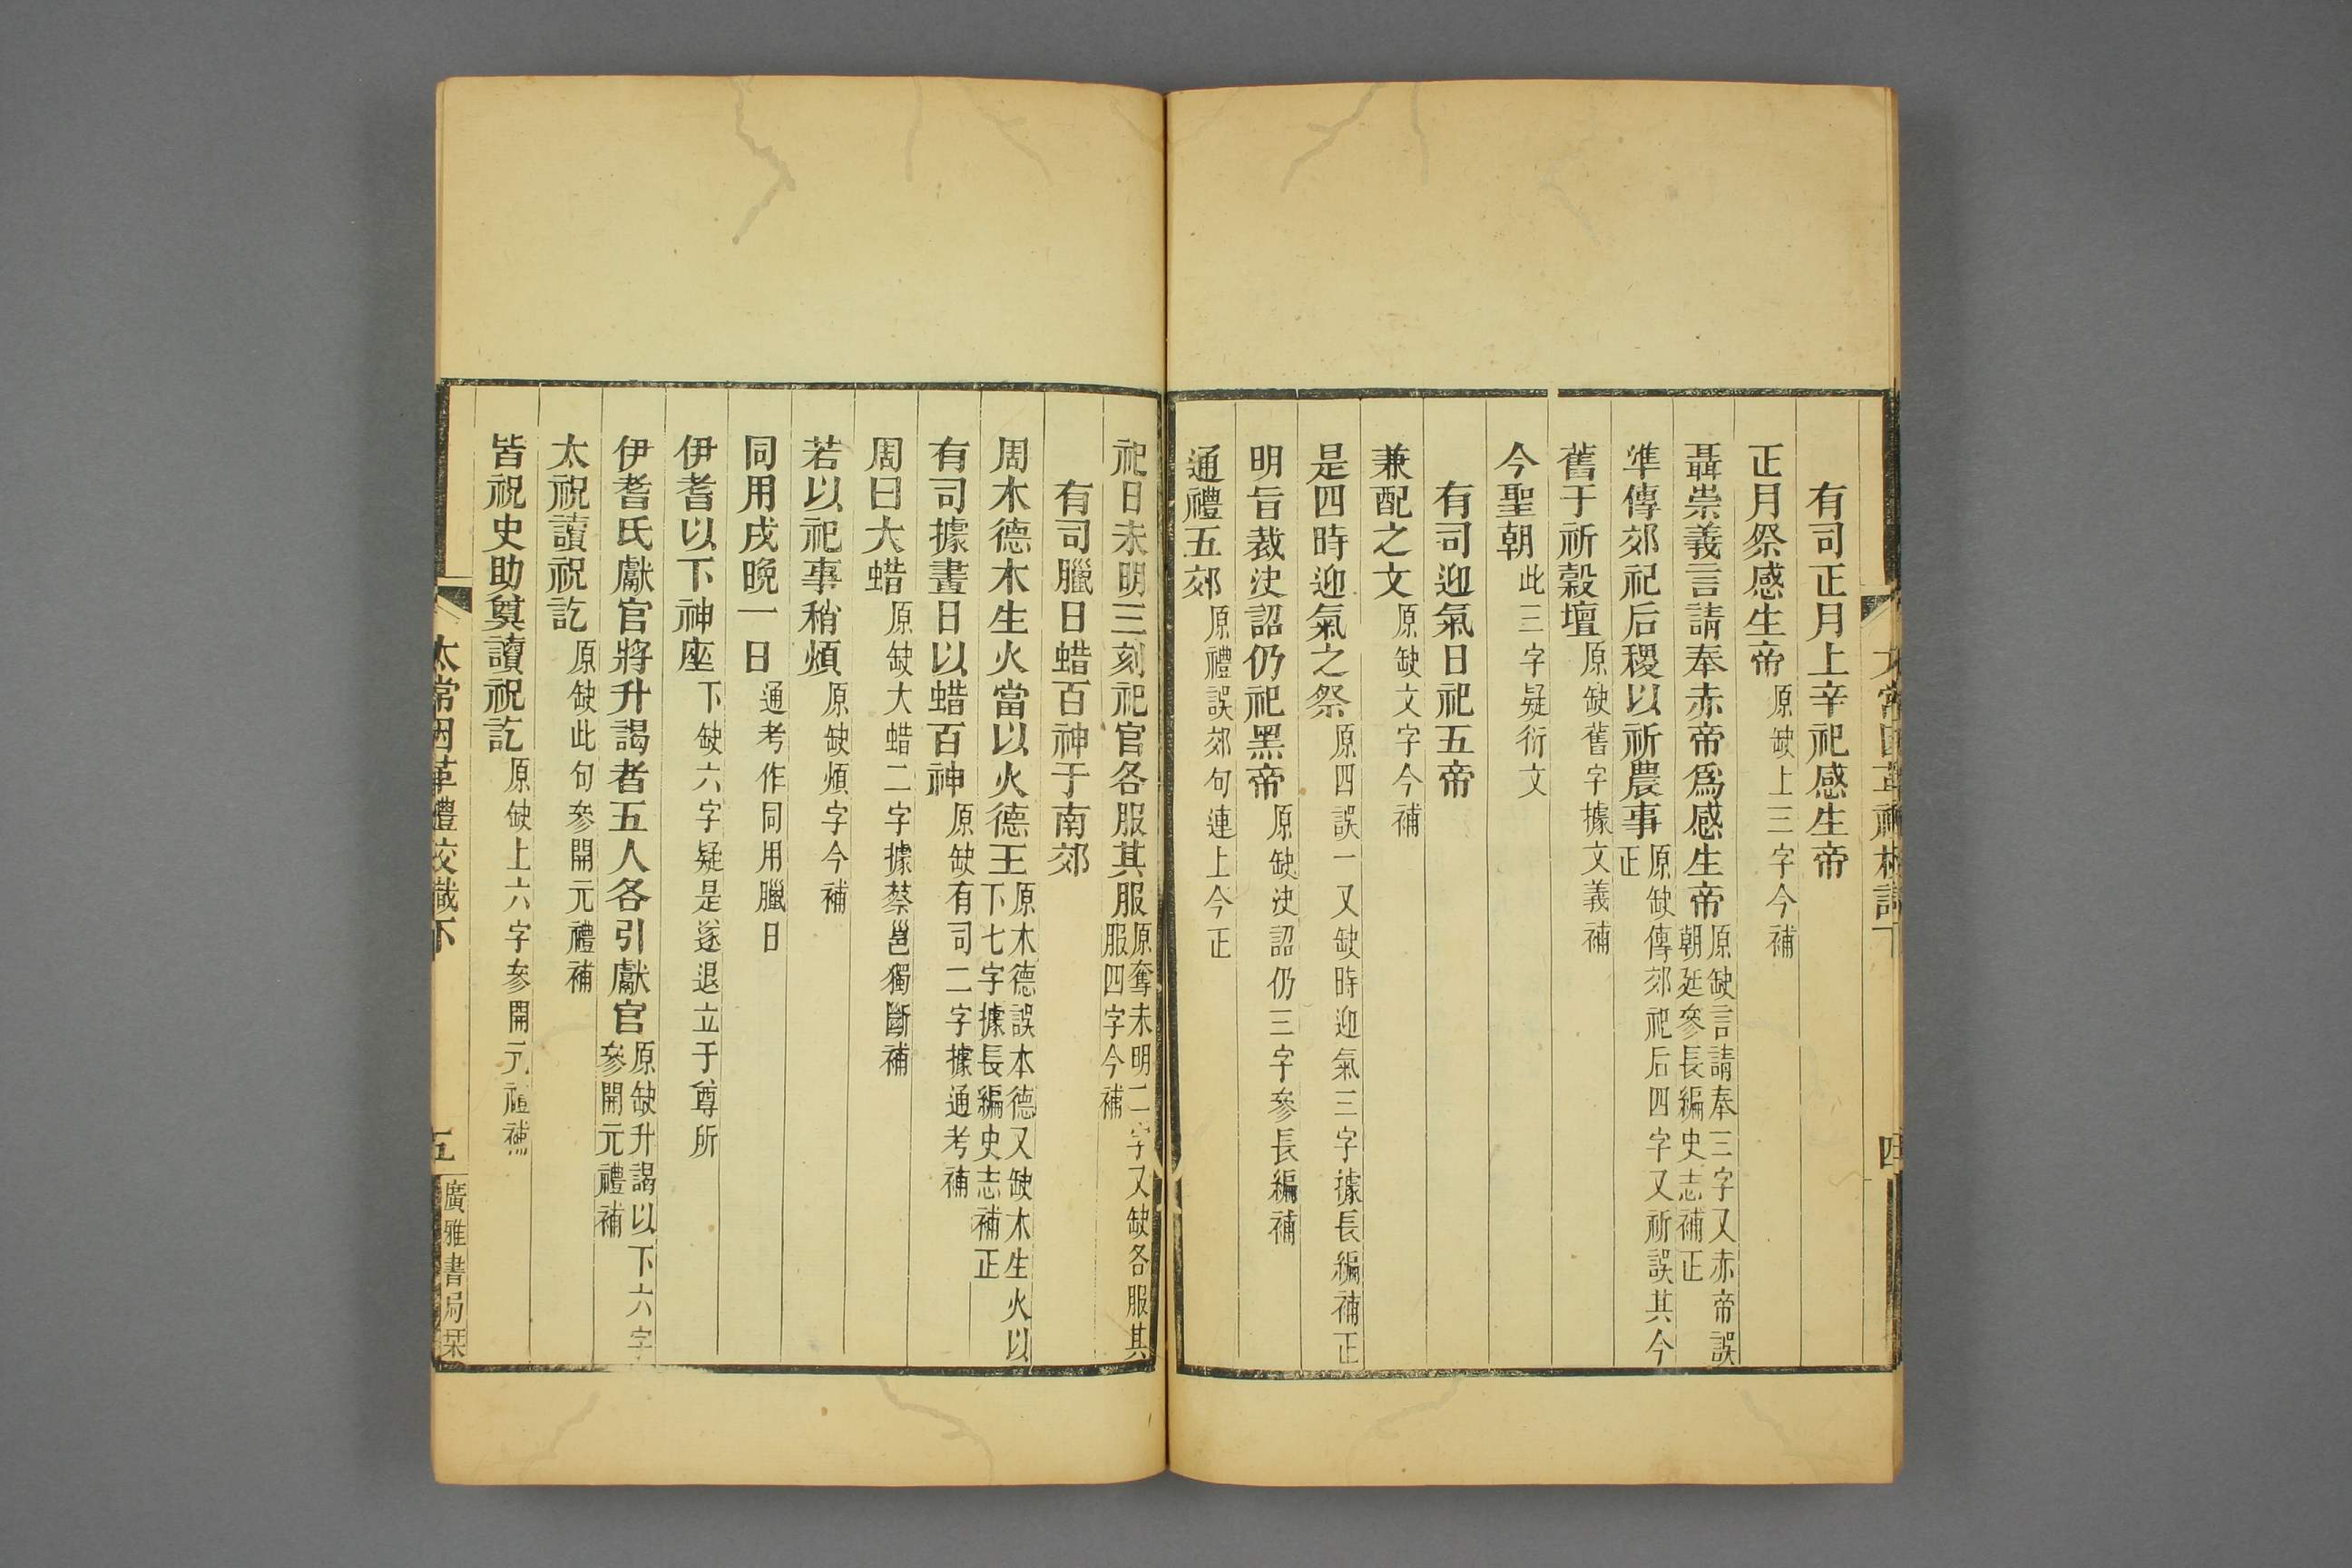 有司正月上辛祀感生帝
正月祭感生帝原缺上三字今補
聶崇義言請奉赤帝爲感生帝原缺言請奉三字又赤帝誤朝廷參長編史志補正
準傳郊祀后稷以祈農事原缺傳郊祀后四字又祈誤其今正
舊于祈穀壇原缺舊字據文義補
今聖朝此三字疑衍文
有司迎氣日祀五帝
兼配之文原缺文字今補
是四時迎氣之祭原四誤一又缺時迎氣三字據長編補正
明旨裁決詔仍祀黑帝原缺決詔仍三字參長編補
通禮五郊原禮誤郊句連上今正
四
祀日未明三刻祀官各服其服原奪未明二字又缺各服其服四字今補
有司臘日蜡百神于南郊
周木德木生火當以火德王原木德誤本德又缺木生火以下七字據長編史志補正
有司據畫日以蜡百神原缺有司二字據通考補
周曰大蜡原缺大蜡二字據蔡邕獨斷補
若以祀事稍煩原缺煩字今補
同用戌晚一日通考作同用臘日
伊耆以下神座下缺六字疑是遂退立于尊所
伊耆氏獻官將升謁者五人各引獻官原缺升謁以下六字參開元禮補
太祝讀祝訖原缺此句參開元禮補
皆祝史助奠讀祝訖原缺上六字參開元禮補
太常因革禮校識下
五
廣雅書局栞